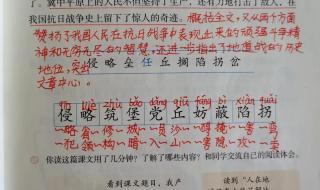 了。冀中平原上的人民不但坚持了生产，还有力地打击了敌人，在
我国抗日战争史上留下了惊人的奇迹。概括全文，又从两个方面
赞扬了我国人民在抗日战争中表现出来的顽强斗争精
神和无穷无尽的智慧，还进一步指出了地道战的历史
地位，突出
文章中心。
侵略垒任丘搁陷拐
qīn lüè zhù bǎo dǎng qiū fáng bì xiàn guǎi
侵略筑堡党丘妨蔽陷拐
你读这篇课文用了几分钟？了解了哪些内容？和同学交流自己的阅读体会。
看到课文题目，我产
读到“人在地